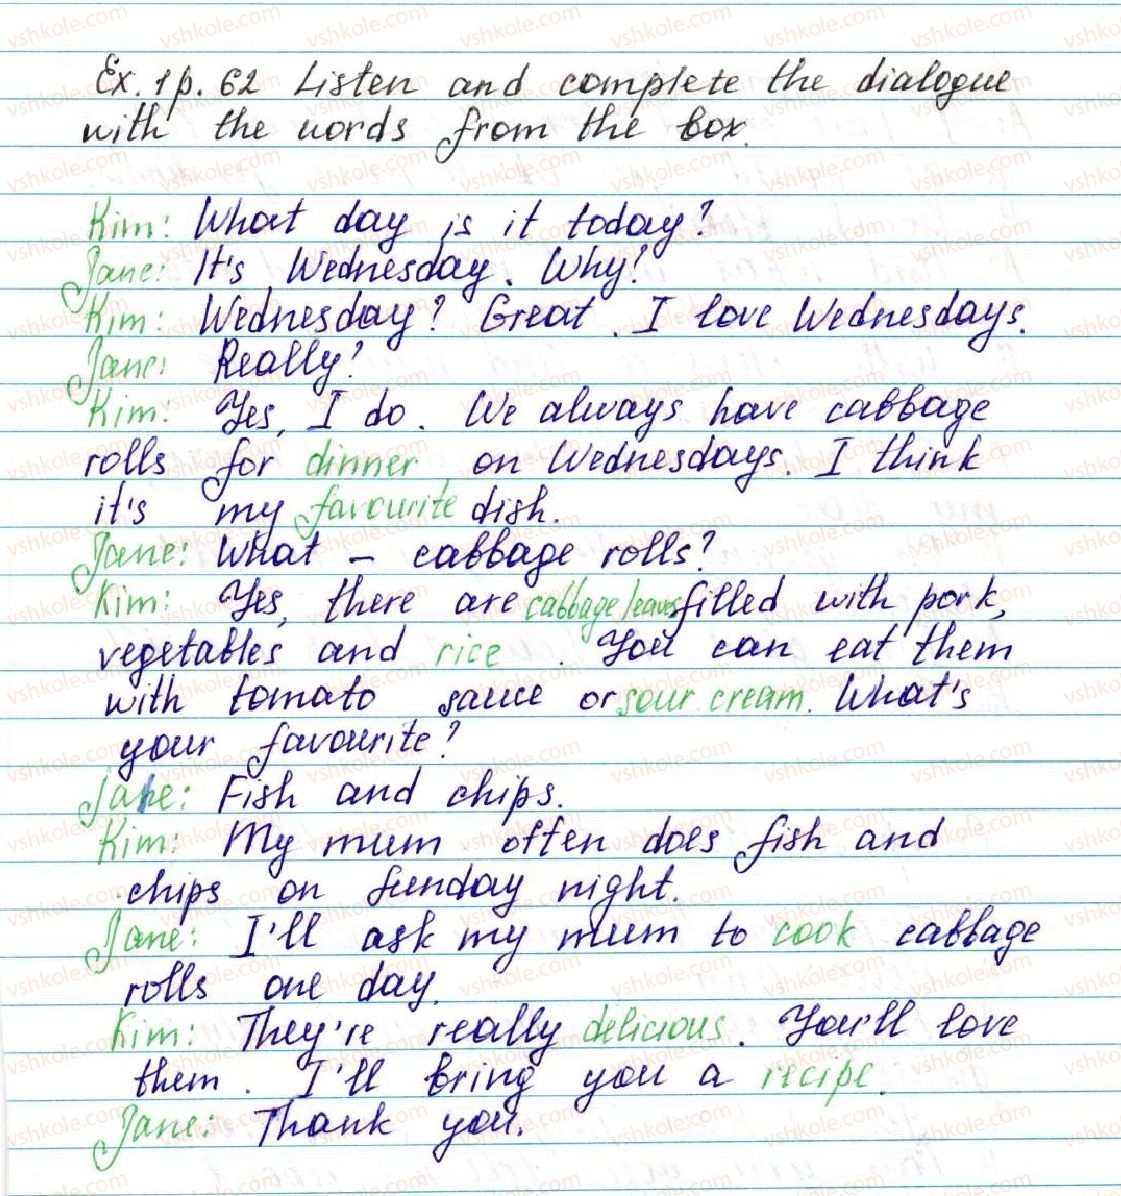 Ex. 1 p. 62 Listen and complete the dialogue
with the words from the box.
Kim: What day is it today?
Jane: It's Wednesday. Why?
Kim: Wednesday? Great. I love Wednesdays.
Jane: Really?
Kim: Yes, I do. We always have cabbage
rolls for dinner on Wednesdays. I think
it's my favourite dish.
Jane: What – cabbage rolls?
Kim: Yes, there are cabbage leaves filled with pork,
vegetables and rice. You can eat them
with tomato sauce or sour cream. What's
your favourite?
Jane: Fish and chips.
Kim: My mum often does fish and
chips on Sunday night.
Jane: I'll ask my mum to cook cabbage
rolls one day.
Kim: They're really delicious. You'll love
them. I'll bring you a recipe.
Jane: Thank you.
vshkole.com